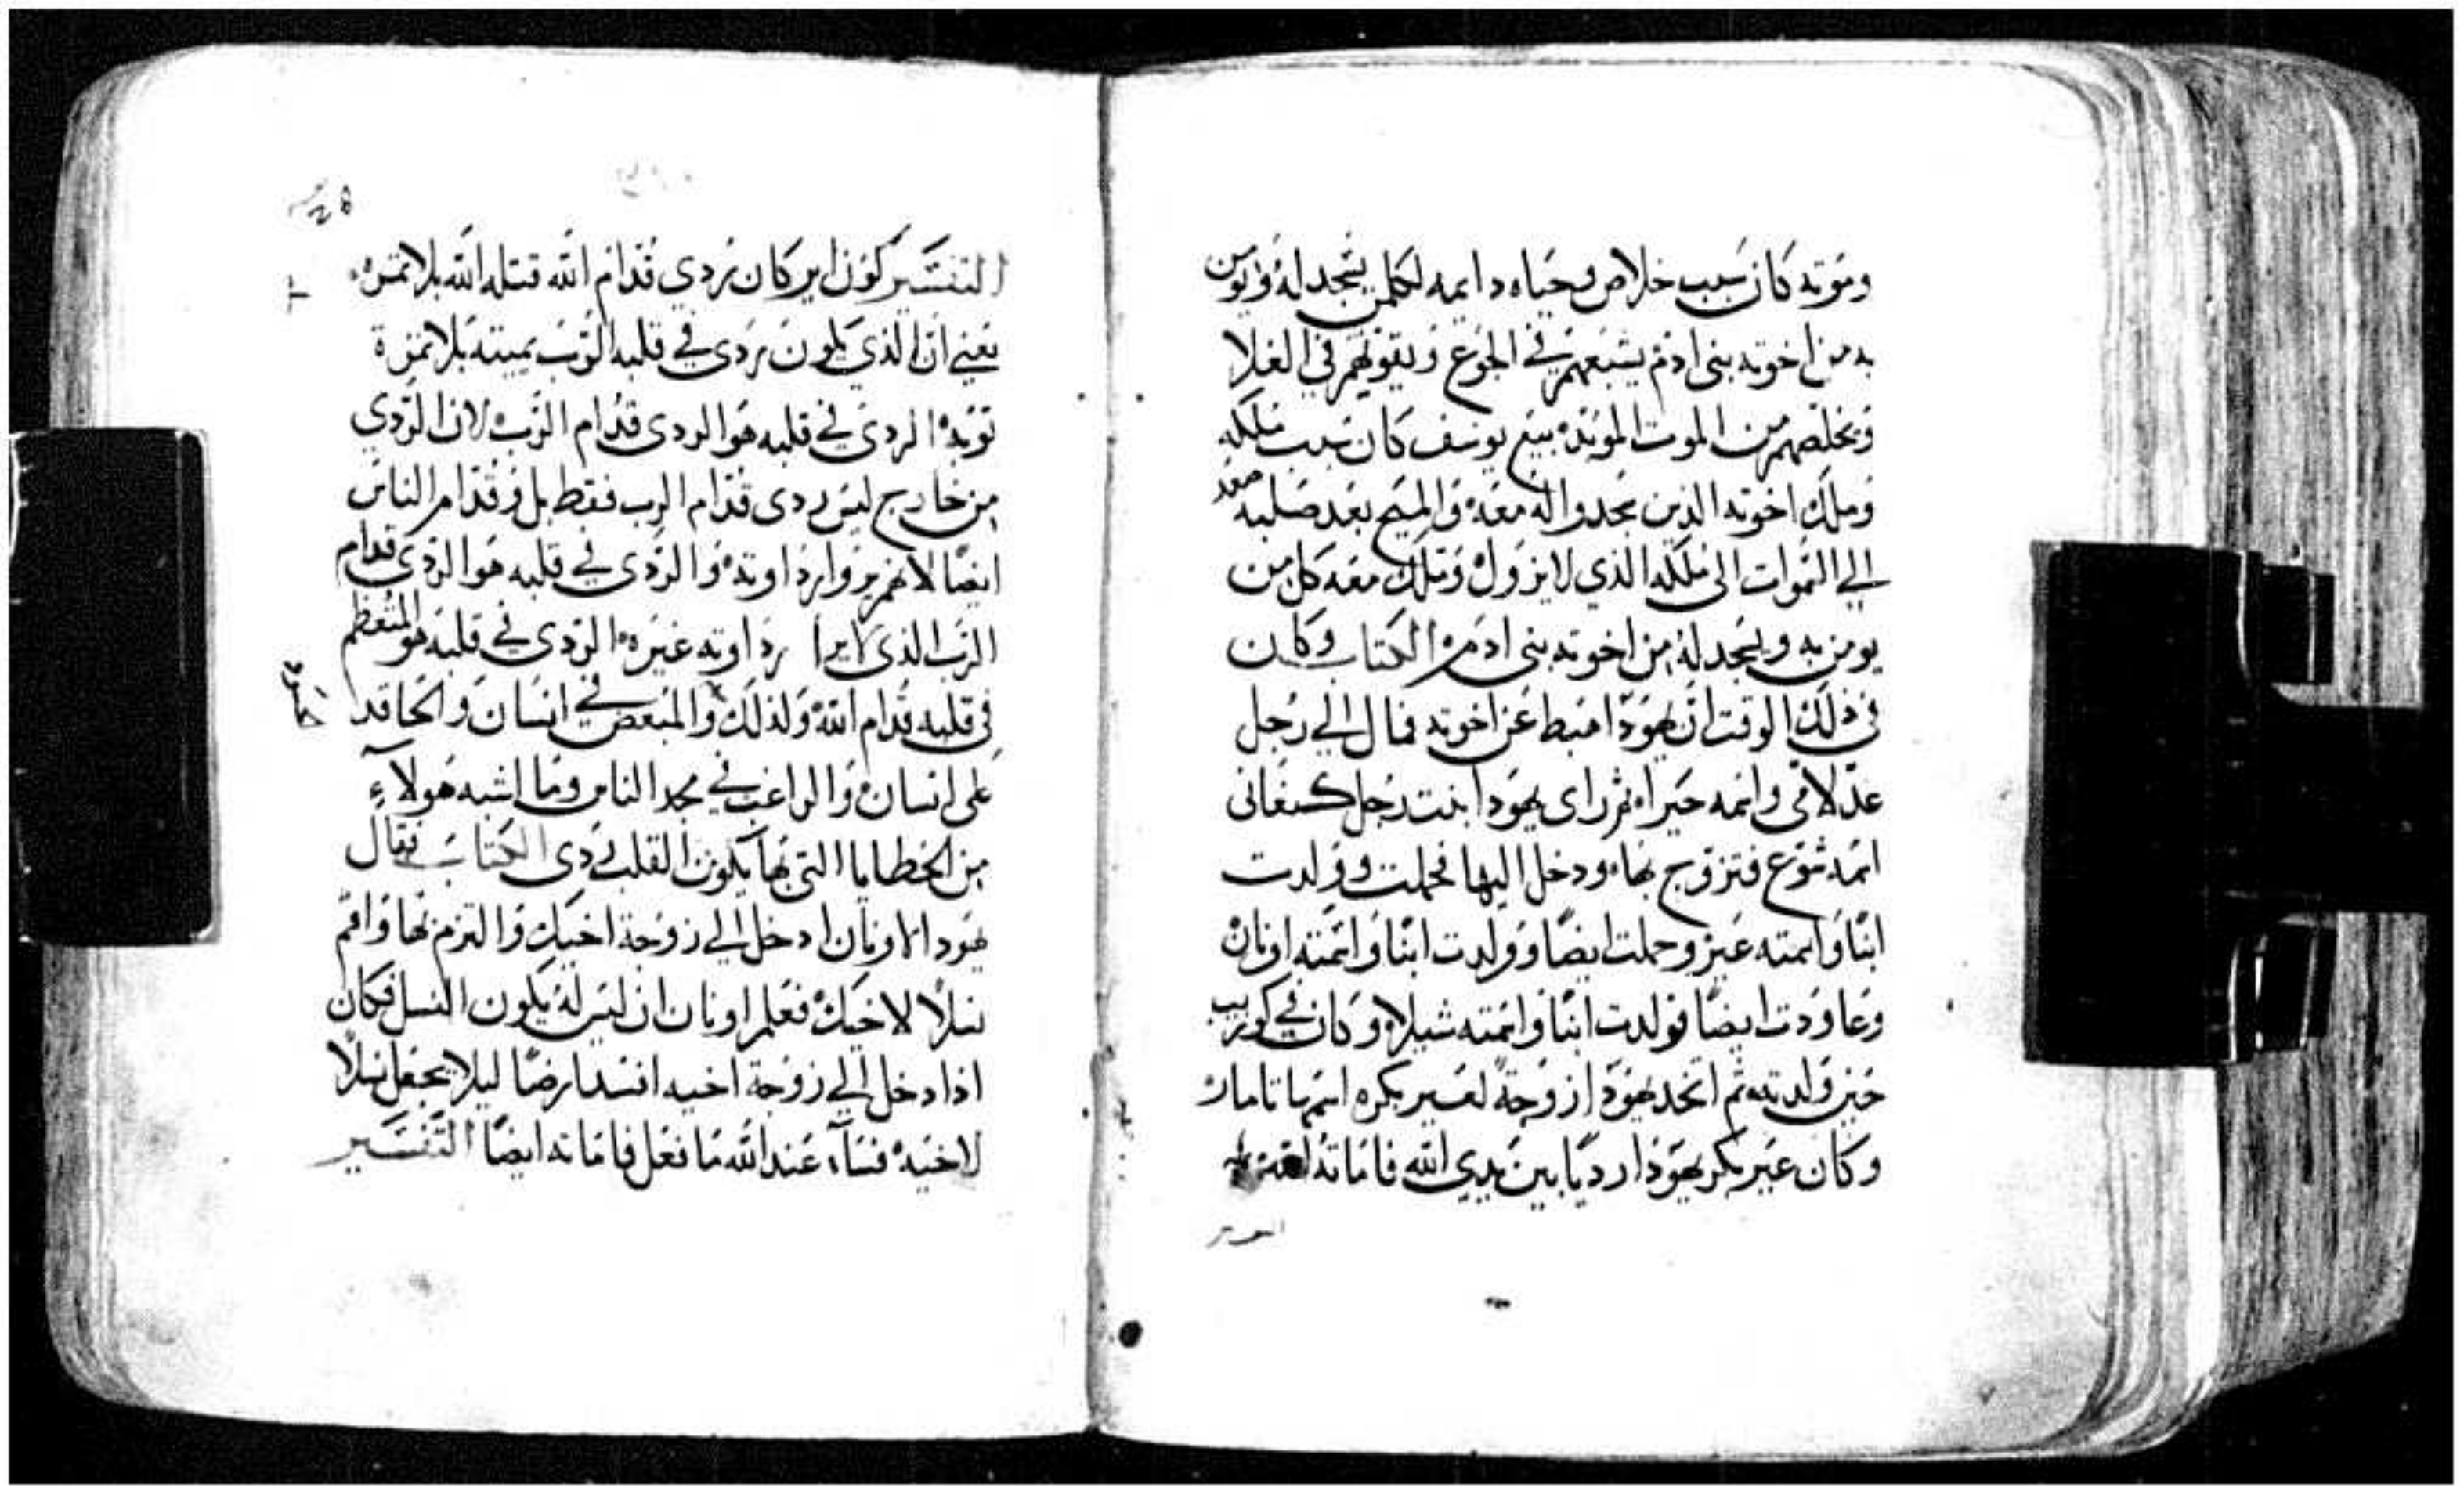 وموته كان سبب خلاص وحياه دايمه لكلمن يسجد له ويومن
به من اخوته بنى ادم يشبعهم في الجوع ويقوتهم في الغلا
ويخلصهم من الموت الموبد بيع يوسف كان سبب ملكه
وملك اخوته الذين سجدوا له معه والمسيح بعد صلبه صعد
الي السموات الى ملكه الذي لا يزول وملك معه كل من
يومن به ويسجد له من اخوته بنى ادم الكتاب وكان
في ذلك الوقت ان يهودا اهبط عن اخوته فمال الي رجل
عدلامى واسمه حيرا ثم راى يهودا ابنت رجل كنعانى
اسمه شوع فتزوج بها ودخل اليها فحملت وولدت
ابنا واسمته عير وحملت ايضا وولدت ابنا واسمته اونان
وعاودت ايضا فولدت ابنا واسمته شيلا وكان في كوزيب
حين ولدته ثم اتخد يهودا زوجة لعير بكره اسمها تامار
وكان عير بكر يهودا رديا بين يدي الله فاماته الله
التفسير
التفسير كون اير كان ردي قدام الله قتله الله بلا ثمره
يعني ان الذي يكون ردى في قلبه الرب يميته بلا ثمرة
توبه الردى في قلبه هو الردى قدام الرب لان الردي
من خارج ليس ردى قدام الرب فقط بل وقدام الناس
ايضا لانهم يروا رداوته والردى في قلبه هو الردى قدام
الرب الذى يرا رداوته غيره الردى في قلبه هو المتعظم
في قلبه قدام الله ولذلك والمبغض في انسان والحاقد
على انسان والراغب في مجد الناس وما اشبه هولآء
من الخطايا التى بها يكون القلب ردى الكتاب فقال
يهودا لاونان ادخل الي زوجة اخيك والتزم بها واقم
نسلا لاخيك فعلم اونان ان ليس له يكون النسل فكان
اذا دخل الي زوجة اخيه افسد ارضا ليلا يجعل نسلا
لاخيه فسآء عند الله ما فعل فاماته ايضا التفسير